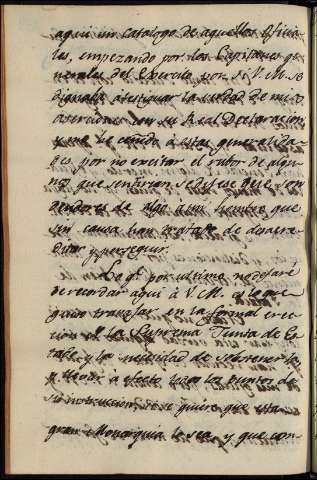 aqui un catalogo de aquellos Oficia-
les, empezando por los Capitanes ge-
nerales del Exercito por si V. M. se
dignase atestiguar la verdad de mis
aserciones con su Real Declaracion
y me he ceñido á estas generalida-
des por no excitar el rubor de algu-
nos que sentirian se dixese que son
deudores de algo á un hombre que
sin causa han tratado de desacre-
ditar y perseguir.
Lo qe. por ultimo no dexaré
de recordar aqui á V. M. es lo que
quise trabajar en la formal erec-
cion de la Suprema Junta de Es-
tado, y la necesidad de sostenerla
y llevar á efecto todos los puntos de
su instruccion, si se quiere que esta
gran Monarquia lo sea, y que con-